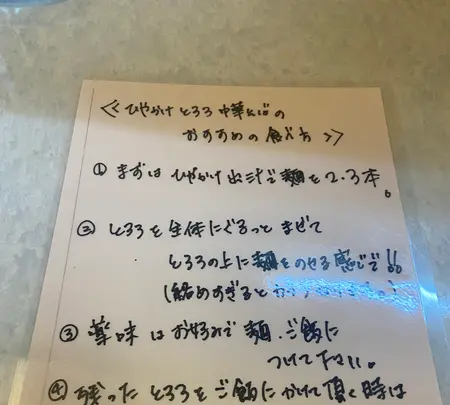 ≪ひやかけとろろ中華そばの
おすすめの食べ方≫
① まずは ひやかけ出汁で麺を2.3本。
② とろろを全体にぐるっと まぜて
とろろの上に麺をのせる感じで!!
(絡めすぎると
③ 薬味はお好みで 麺・ご飯に
つけて下さい。
④ 残ったとろろをご飯にかけて頂く時は